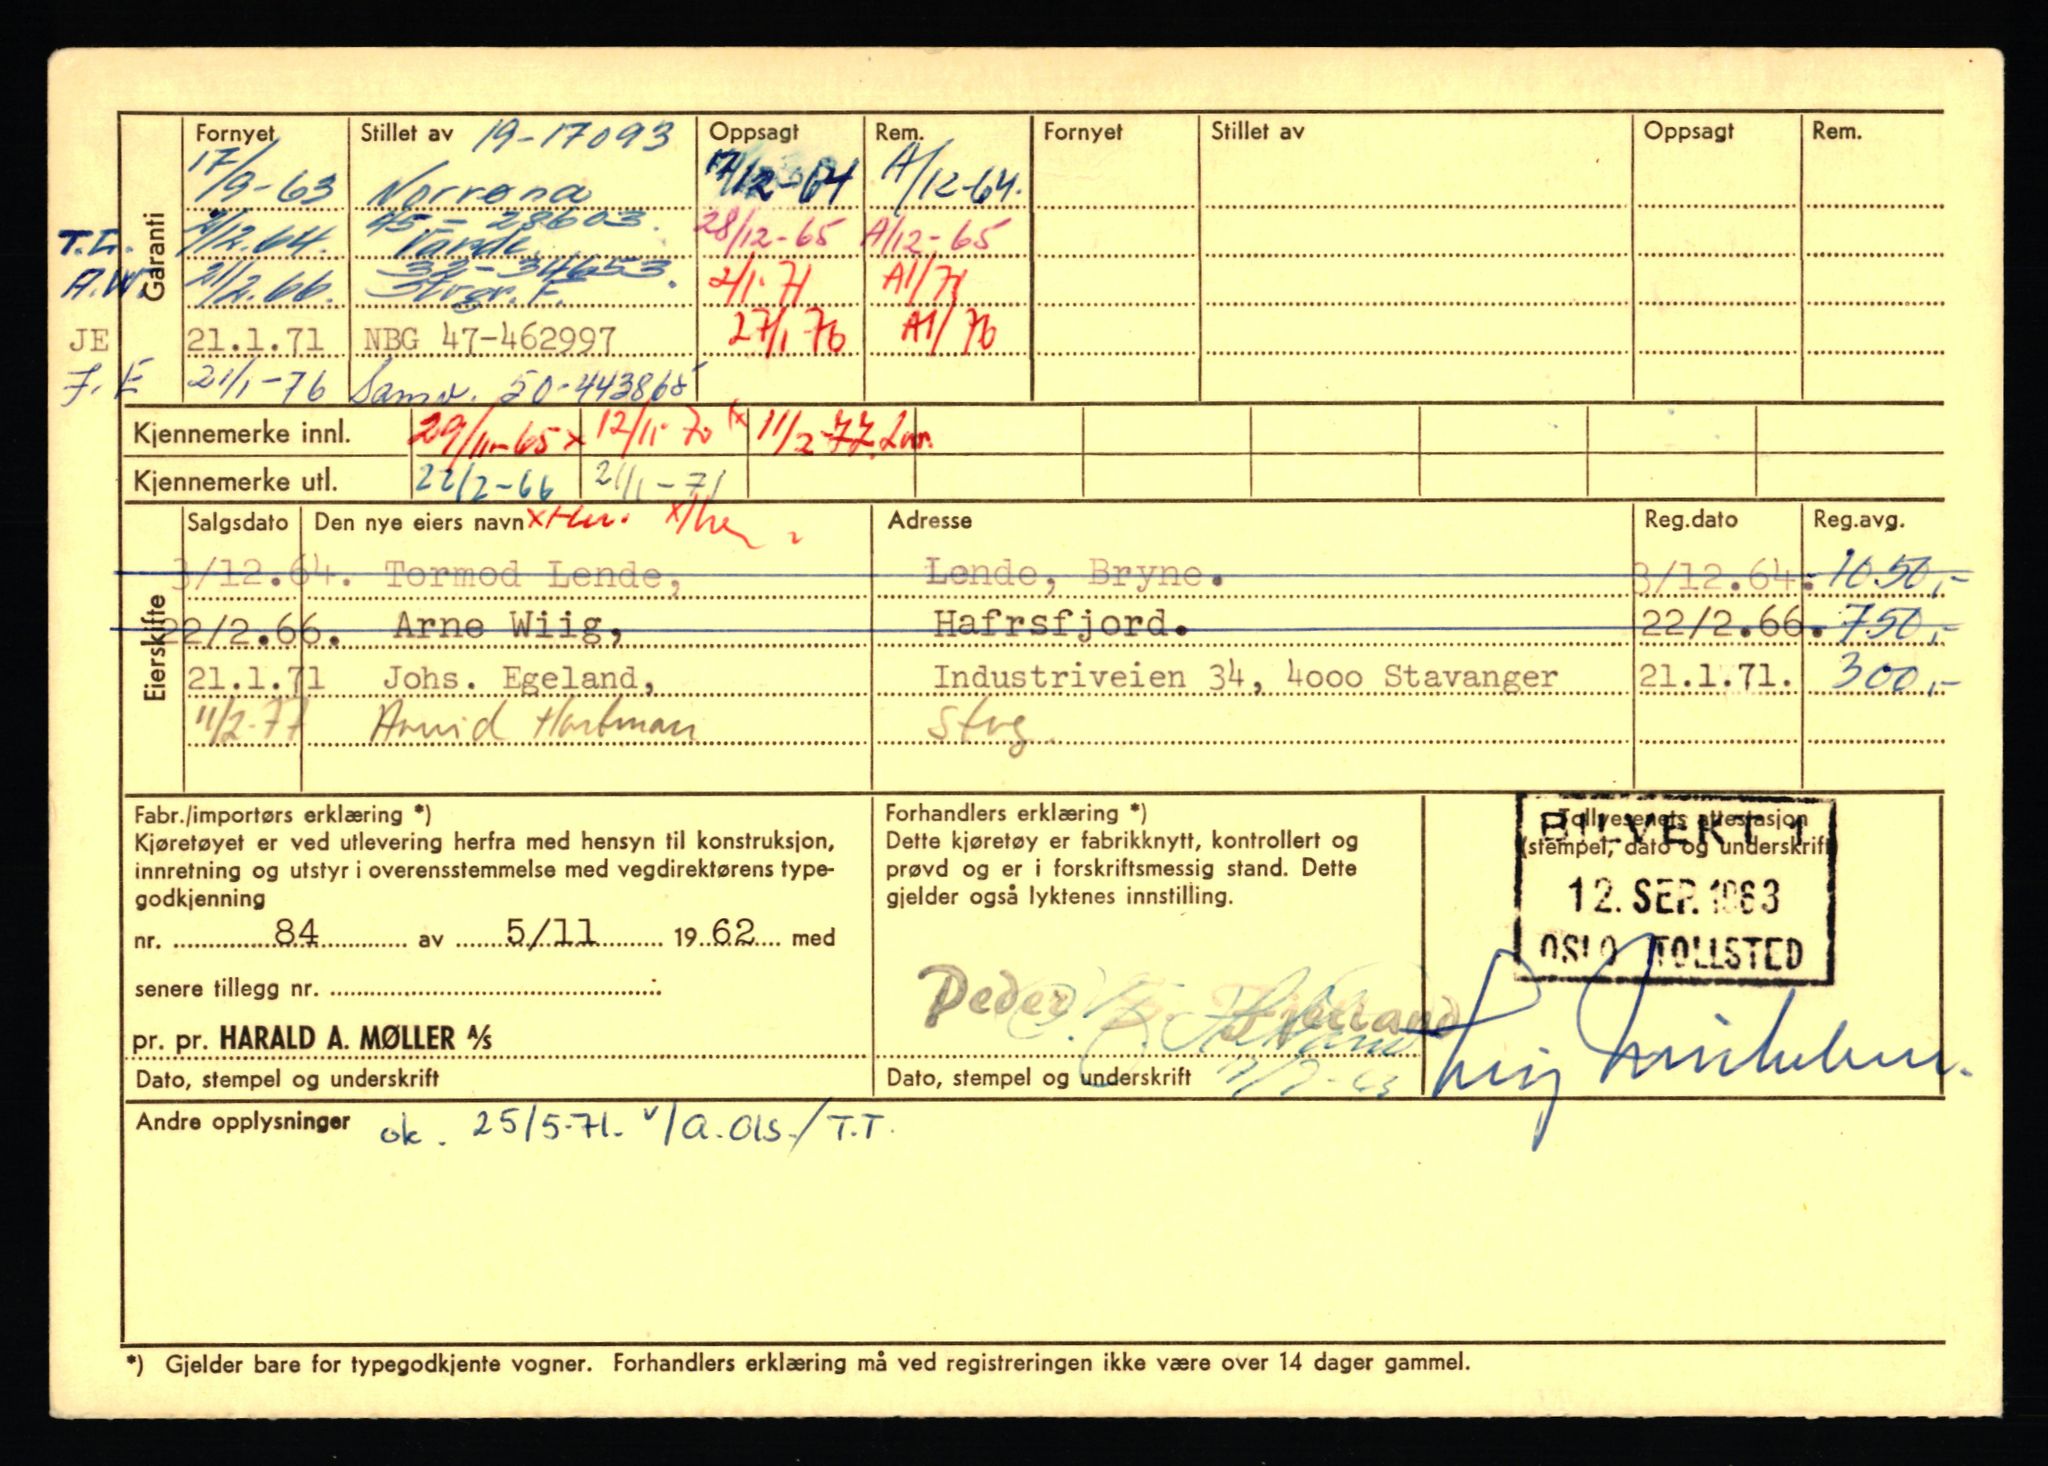 Garanti
Fornyet Stillet av 19-17093 Oppsagt Rem. Fornyet Stillet av Oppsagt Rem.
17/9-63 Norrøna 17/12-64 A/12-64.
T.L. 2/12.64. 45-28603. 28/12-65 A/12-65
A.W. 21/2.66. 33-34653. Stvgr. F. 2/1-71 A1/71
JE 21.1.71 NBG 47-462997 27/1-76 A1/76
J.E 21/1-76 Samv. 50-443865
Kjennemerke innl. 29/11-65 x 12/11-70 x 11/2-77
Kjennemerke utl. 22/2-66 21/1-71
Eierskifte
Salgsdato Den nye eiers navn Adresse Reg.dato Reg.avg.
3/12.64. Tormod Lende, Lende, Bryne. 3/12.64. 1050,-
22/2.66. Arne Wiig, Hafrsfjord. 22/2.66. 750,-
21.1.71 Johs. Egeland, Industriveien 34, 4000 Stavanger 21.1.71. 300,-
11/2-77 Arvid Hartman Stvg.
Fabr./importørs erklæring *)
Kjøretøyet er ved utlevering herfra med hensyn til konstruksjon,
innretning og utstyr i overensstemmelse med vegdirektørens type-
godkjenning
nr. 84 av 5/11 1962 med
senere tillegg nr.
pr. pr. HARALD A. MØLLER A/S
Dato, stempel og underskrift
Forhandlers erklæring *)
Dette kjøretøy er fabrikknytt, kontrollert og
prøvd og er i forskriftsmessig stand. Dette
gjelder også lyktenes innstilling.
Peder
Dato, stempel og underskrift
Tollvesenets attestasjon
(stempel, dato og underskrift)
BILVEKT 1
12. SEP. 1963
OSLO TOLLSTED
Andre opplysninger ok. 25/5-71. v/A.Ols./T.T.
*) Gjelder bare for typegodkjente vogner. Forhandlers erklæring må ved registreringen ikke være over 14 dager gammel.